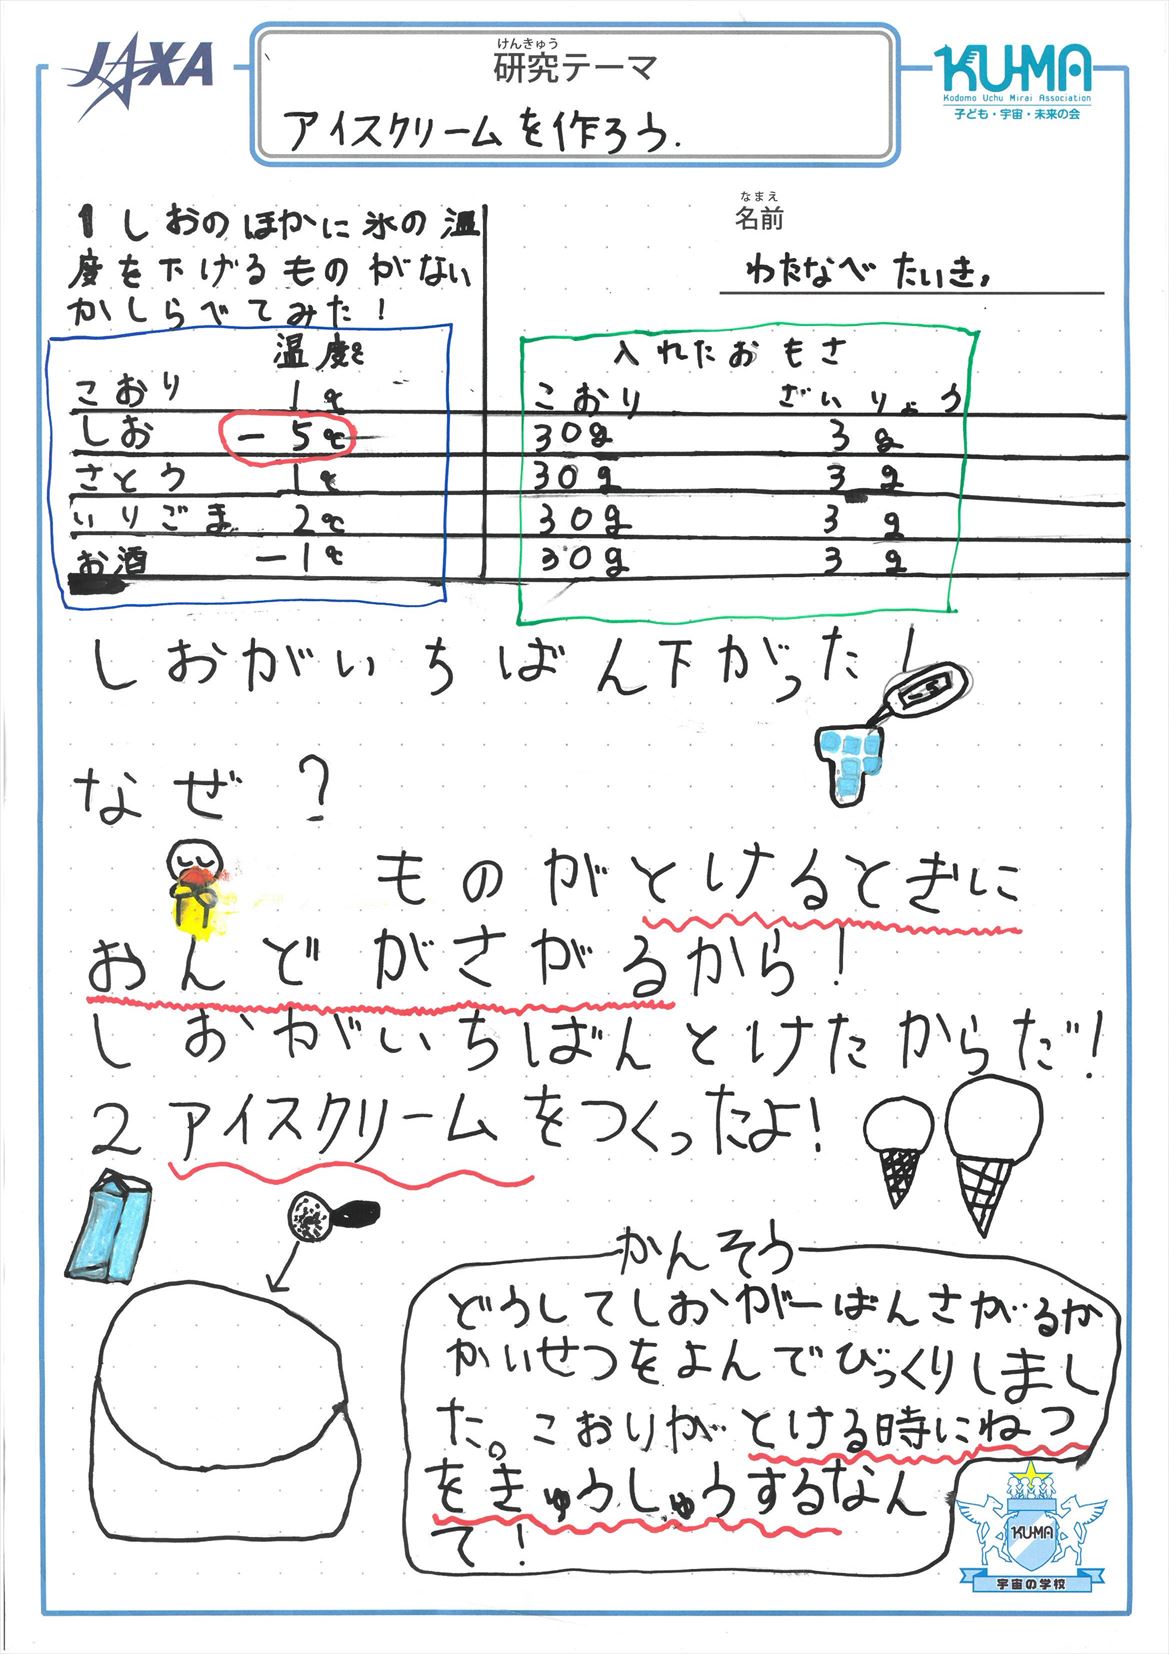 JAXA
けんきゅう
研究テーマ
アイスクリームを作ろう.
KU-MA
Kodomo Uchu Mirai Association
子ども・宇宙・未来の会
なまえ
名前
わたなべ たいき。
1 しおのほかに氷の温
度を下げるものがない
かしらべてみた!
温度℃
こおり 1℃
しお -5℃
さとう 1℃
いりごま 2℃
お酒 -1℃
入れたおもさ
こおり ざいりょう
30g 3g
30g 3g
30g 3g
30g 3g
しおがいちばん下がった!
-5
なぜ?
ものがとけるときに
おんどがさがるから!
しおがいちばんとけたからだ!
2 アイスクリームをつくったよ!
かんそう
どうしてしおが一ばんさがるか
かいせつをよんでびっくりしまし
た。こおりがとける時にねつ
をきゅうしゅうするなん
て!
KU-MA
宇宙の学校